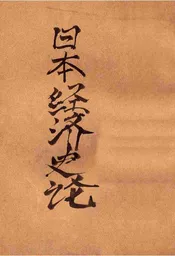 日本経済史論